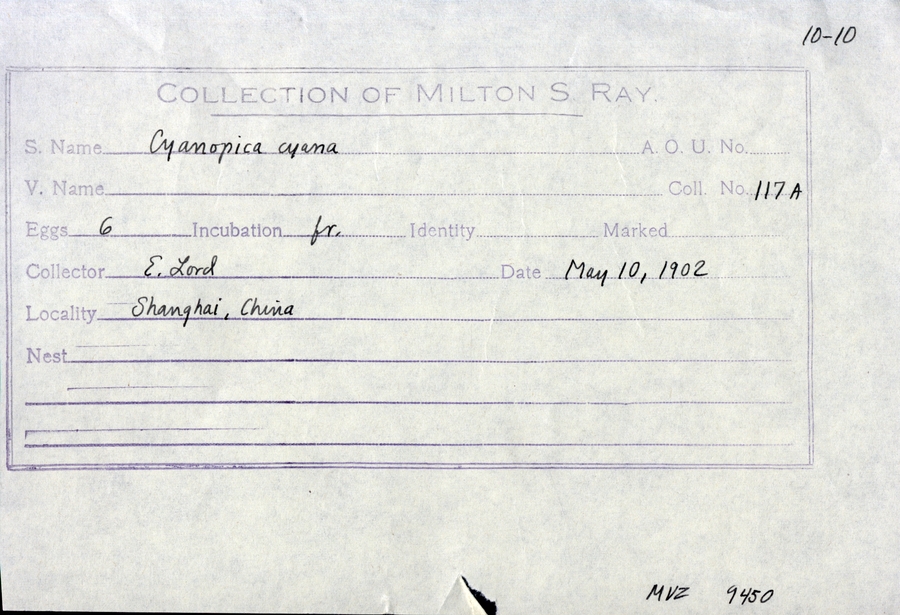 10-10
COLLECTION OF MILTON S. RAY.
S. Name Cyanopica cyana A. O. U. No.
V. Name Coll. No. 117A
Eggs 6 Incubation fr. Identity Marked
Collector E. Lord Date May 10, 1902
Locality Shanghai, China
Nest
MVZ 9450